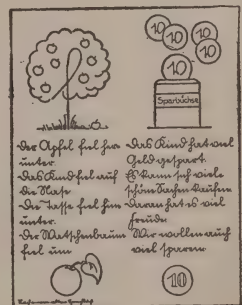 10
10
10
10
10
Sparbüchse
Der Apfel fiel her-
unter.
Das Kind fiel auf
die Nase.
Die Tasse fiel hin-
unter.
Der Watschenbaum
fiel um
Das Kind hat viel
Geld gespart.
Es kann sich viele
schöne Sachen kaufen
Daran hat es viel
Freude
Wir wollen auch
viel sparen
10